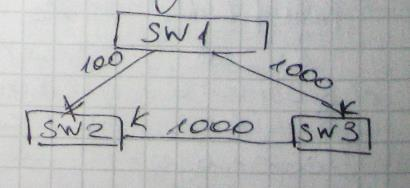 SW1
100 1000
SW2 1000 SW3